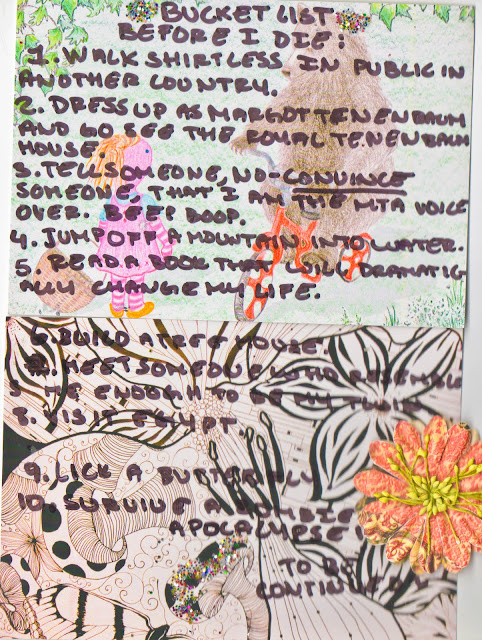 BUCKET LIST
BEFORE I DIE:
1. WALK SHIRTLESS IN PUBLIC IN
ANOTHER COUNTRY.
2. DRESS UP AS MARGOT TENENBAUM
AND GO SEE THE ROYAL TENENBAUM
HOUSE.
3. TELL SOMEONE, NO-CONVINCE
SOMEONE THAT I AM THE MTA VOICE
OVER. BEEP BOOP.
4. JUMP OFF A MOUNTAIN INTO WATER.
5. READ A BOOK THAT WILL DRAMATIC
ALLY CHANGE MY LIFE.
6. BUILD A TREE HOUSE.
7. MEET SOMEONE WHO RESEMBLE
S ME ENOUGH TO BE MY TWIN
8. VISIT EGYPT.
9. LICK A BUTTERFLY
10. SURVIVE A ZOMBIE
APOCALYPSE
TO BE
CONTINUED